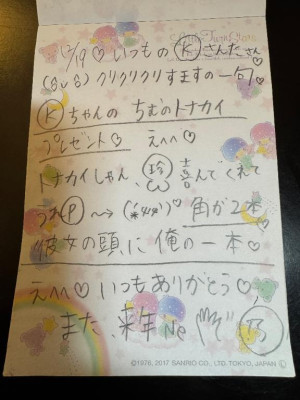 12/19♡いつもの Ⓚ さんたさん♡
(8v8) クリクリクリすますの一句♡
Ⓚちゃんの ちむのトナカイ
プレゼント♡ えへへ♡
トナカイしゃん、喜んでくれて
うれP 〜→ 角が2本♡
彼女の頭に俺の一本♡
えへへ♡いつもありがとう♡
また、来年Ne
©1976, 2017 SANRIO CO., LTD. TOKYO, JAPAN Ⓛ